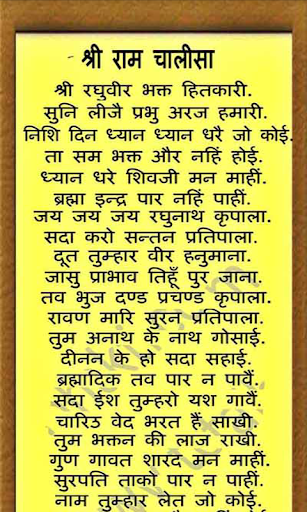 श्री राम चालीसा
श्री रघुवीर भक्त हितकारी.
सुनि लीजै प्रभु अरज हमारी.
निशि दिन ध्यान ध्यान धरै जो कोई.
ता सम भक्त और नहिं होई.
ध्यान धरे शिवजी मन माहीं.
ब्रह्मा इन्द्र पार नहिं पाहीं.
जय जय जय रघुनाथ कृपाला.
सदा करो सन्तन प्रतिपाला.
दूत तुम्हार वीर हनुमाना.
जासु प्राभाव तिहूँ पुर जाना.
तव भुज दण्ड प्रचण्ड कृपाला.
रावण मारि सुरन प्रतिपाला.
तुम अनाथ के नाथ गोसाई.
दीनन के हो सदा सहाई.
ब्रह्मादिक तव पार न पावैं.
सदा ईश तुम्हरो यश गावैं.
चारिउ वेद भरत हैं साखी.
तुम भक्तन की लाज राखी.
गुण गावत शारद मन माहीं.
सुरपति ताको पार न पाहीं.
नाम तुम्हार लेत जो कोई.